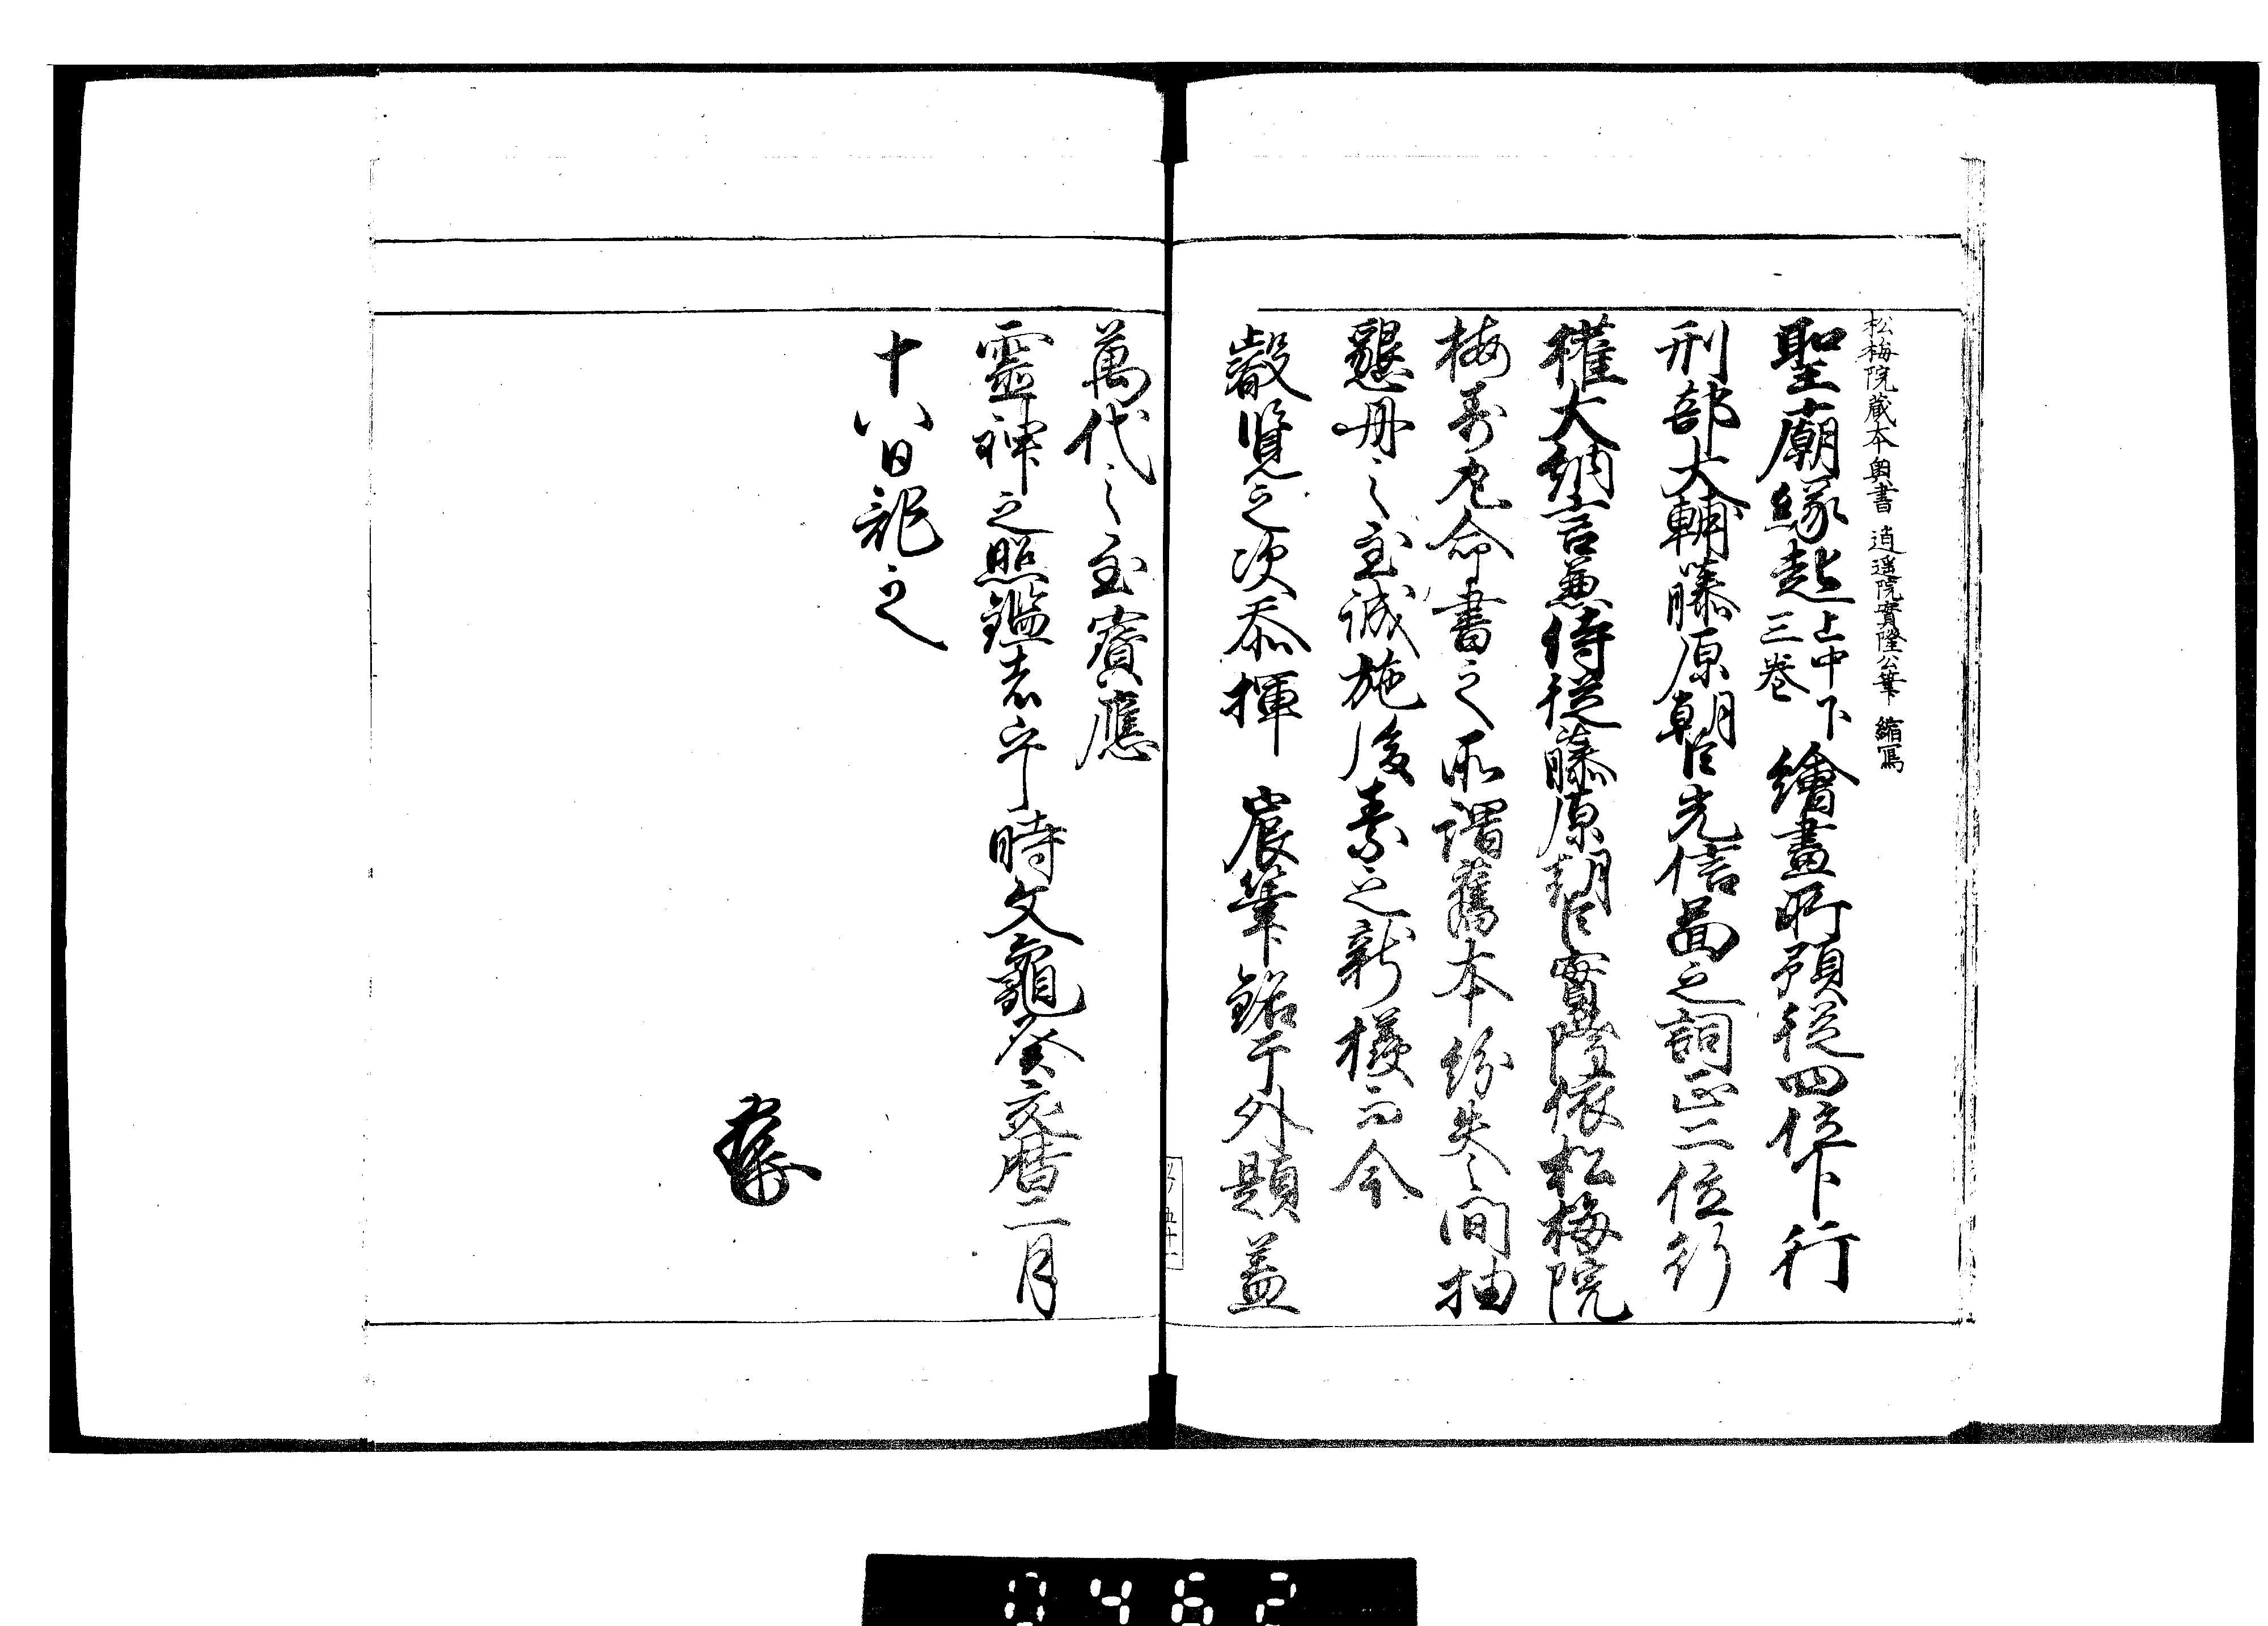 松梅院蔵本奥書 逍遥院實隆公筆 縮写
聖廟縁起上中下三巻 繪畫所預従四位下行
刑部大輔藤原朝臣光信畫之詞正二位行
権大納言兼侍従藤原朝臣實隆依松梅院
梅寿丸命書之所謂舊本紛失之間抽
懇丹之至誠施後素之新様而今
叡覧之次忝揮 宸筆銘于外題蓋
萬代之至寳應
霊神之照鑑者乎時文龜癸亥暦二月
十八日記之
0462